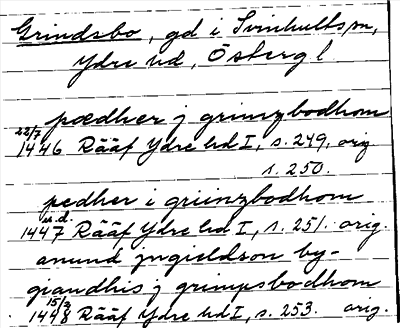 Grindsbo, gd i Svinhults sn,
Ydre hd, Östergl
pædher j grimzbodhom
22/7
1446 Rääf Ydre hd I, s. 249, orig
s. 250.
pedher i griinzbodhom
u.d.
1447 Rääf Ydre hd I, s. 251. orig.
amund jngieldson by-
giandhis j grimpsbodhom
15/3
1448 Rääf Ydre hd I, s. 253. orig.